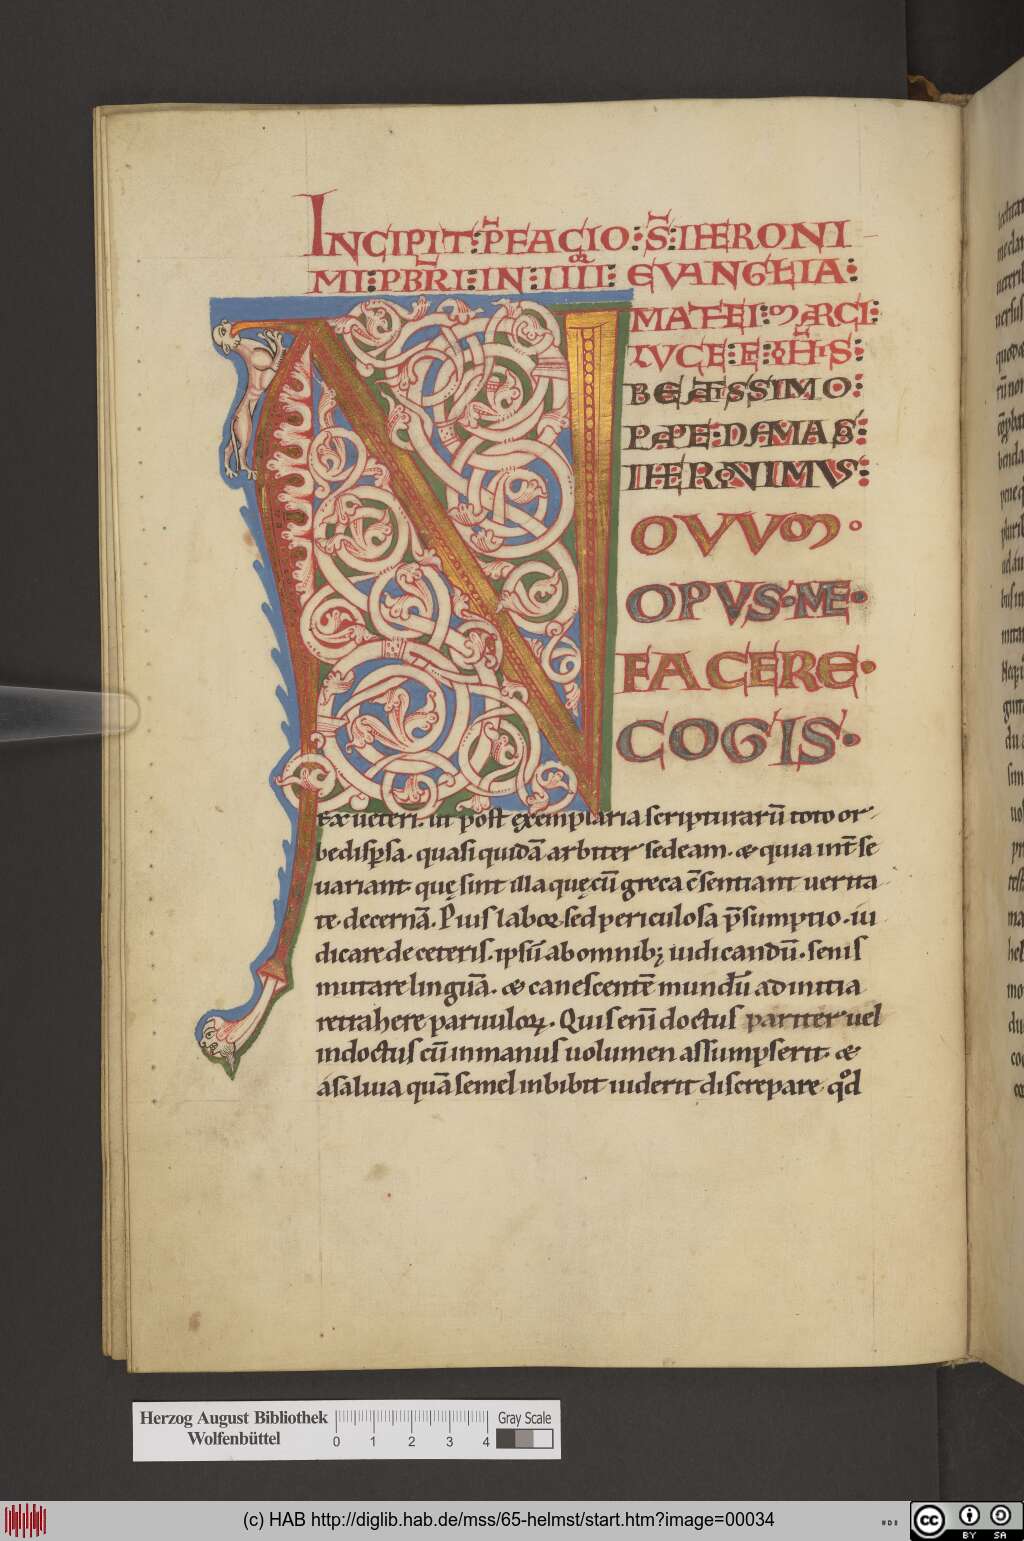 INCIPIT: P̄FACIO: S̄: IHERONI
MI: PBR̄I: IN: IIII: EVANGELIA:
MATEI: MARCI:
LVCE: E: IOH̄IS:
BEATISSIMO:
PAPE: DAMASO:
IHERONIMVS:
N
OVVM.
OPVS. ME.
FACERE.
COGIS.
Ex ueteri. ut post exemplaria scripturarū toto or
be dispsa. quasi quidā arbiter sedeam. & quia int̄ se
uariant. quę sint illa quę cū greca c̄sentiant uerita
te. decernā. Pius labor. sed periculosa p̄sumptio. iu
dicare de ceteris. ipsū ab omnibꝫ iudicandū. senis
mutare linguā. & canescentē mundū ad initia
retrahere paruuloꝝ. Quis enī doctus pariter uel
indoctus cū in manus uolumen assumpserit. &
a saliua quā semel inbibit uiderit discrepare qd
Herzog August Bibliothek
Wolfenbüttel
0 1 2 3 4
Gray Scale
(c) HAB http://diglib.hab.de/mss/65-helmst/start.htm?image=00034
cc BY SA